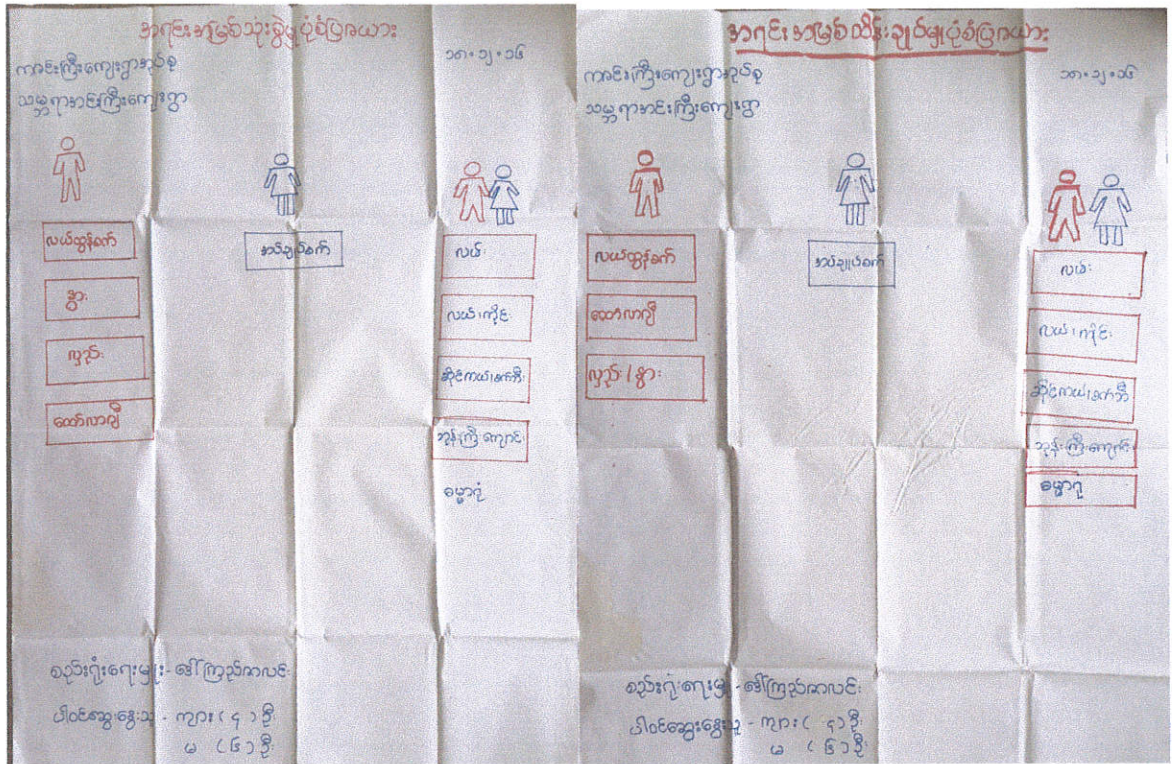 အရင်းအမြစ်သုံးစွဲမှုပုံစံပြဇယား
၁၈.၁၂.၁၆
ကအင်းကြီးကျေးရွာအုပ်စု
သမ္ဘရာအင်းကြီးကျေးရွာ
လယ်ထွန်စက်
နွား
လှည်း
ထော်လာဂျီ
အပ်ချုပ်စက်
လယ်
လယ်၊ကိုင်း
ဆိုင်ကယ်၊စက်ဘီး
ဘုန်းကြီးကျောင်း
ဓမ္မာရုံ
စည်းရုံးရေးမှူး - ဒေါ်ကြည်ကလင်း
ပါဝင်ဆွေးနွေးသူ - ကျား (၄) ဦး
မ (၆) ဦး
အရင်းအမြစ်ထိန်းချုပ်မှုပုံစံပြဇယား
ကအင်းကြီးကျေးရွာအုပ်စု
၁၈.၁၂.၁၆
သမ္ဘရာအင်းကြီးကျေးရွာ
လယ်ထွန်စက်
ထော်လာဂျီ
လှည်း / နွား
အပ်ချုပ်စက်
လယ်
လယ်၊ကိုင်း
ဆိုင်ကယ်၊စက်ဘီး
ဘုန်းကြီးကျောင်း
ဓမ္မာရုံ
စည်းရုံးရေးမှူး - ဒေါ်ကြည်ကလင်း
ပါဝင်ဆွေးနွေးသူ - ကျား (၄) ဦး
မ (၆) ဦး